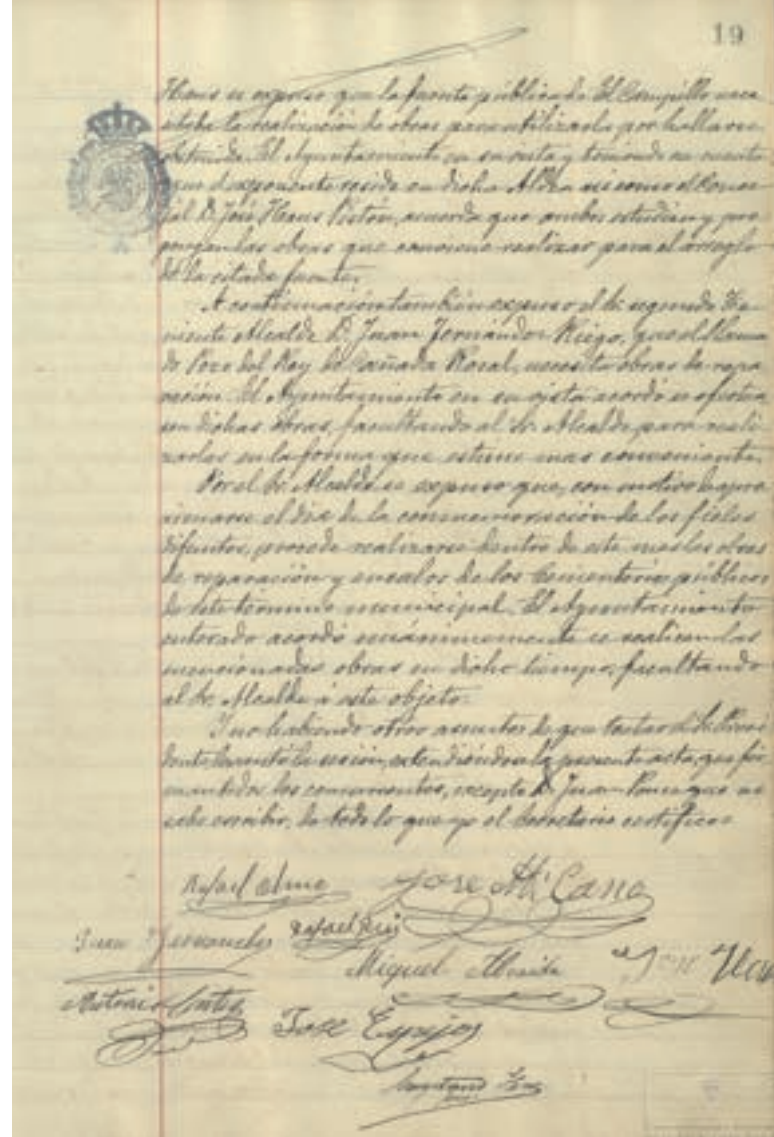 19
Hans se expuso que la fuente pública de El Campillo nece
sitaba la realización de obras para utilizarla por hallarse
obstruida. El Ayuntamiento en su vista y teniendo en cuenta
que el exponente reside en dicha Aldea así como el Conce
jal D. José Hans Pistón, acuerda que ambos estudien y pro
pongan las obras que conviene realizar para el arreglo
de la citada fuente.
A continuación también expuso el Sr. segundo Te
niente Alcalde D. Juan Fernández Riego, que el llama
do Pozo del Rey de Cañada Rosal, necesita obras de repa
ración. El Ayuntamiento en su vista acordó se efectúa
sen dichas obras, facultando al Sr. Alcalde para reali
zarlas en la forma que estime mas conveniente.
Por el Sr. Alcalde se expuso que, con motivo de apro
ximarse el día de la conmemoración de los fieles
difuntos, procede realizarse dentro de este mes las obras
de reparación y encalos de los Cementerios públicos
de este término municipal. El Ayuntamiento
enterado acordó unánimemente se realicen las
mencionadas obras en dicho tiempo, facultando
al Sr. Alcalde á este objeto.
Y no habiendo otros asuntos de que tratar el Sr. Presi
dente levantó la sesión, extendiéndose la presente acta, que fir
man todos los concurrentes, excepto D. Juan Ponce que no
sabe escribir, de todo lo que yo el Secretario certifico=
Rafael José Mª Cano
Juan Fernandez Rafael
Miguel José
Antonio
José Espejo